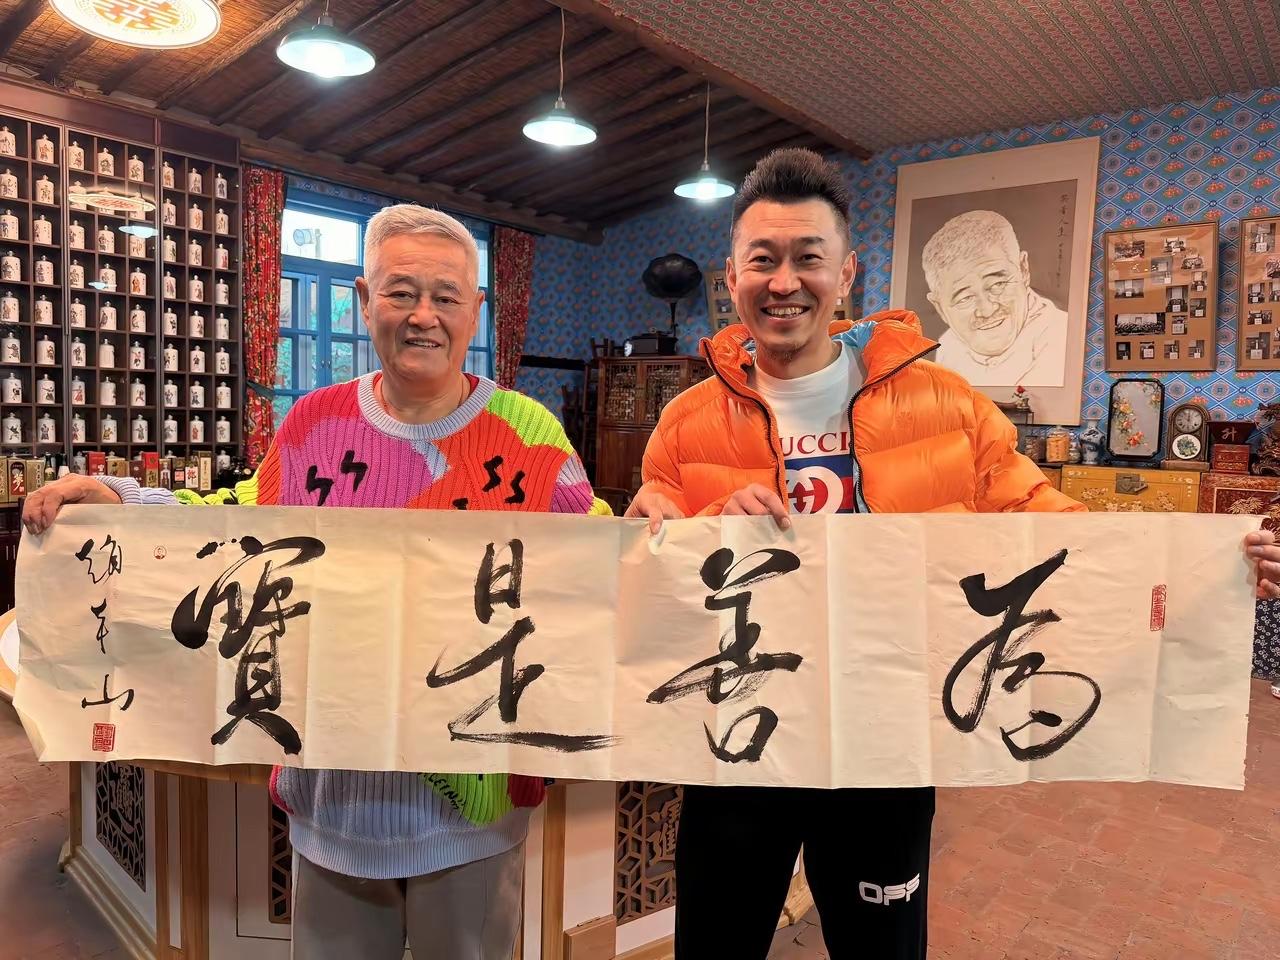 為善是寶
趙本山
GUCCI
OFF
升